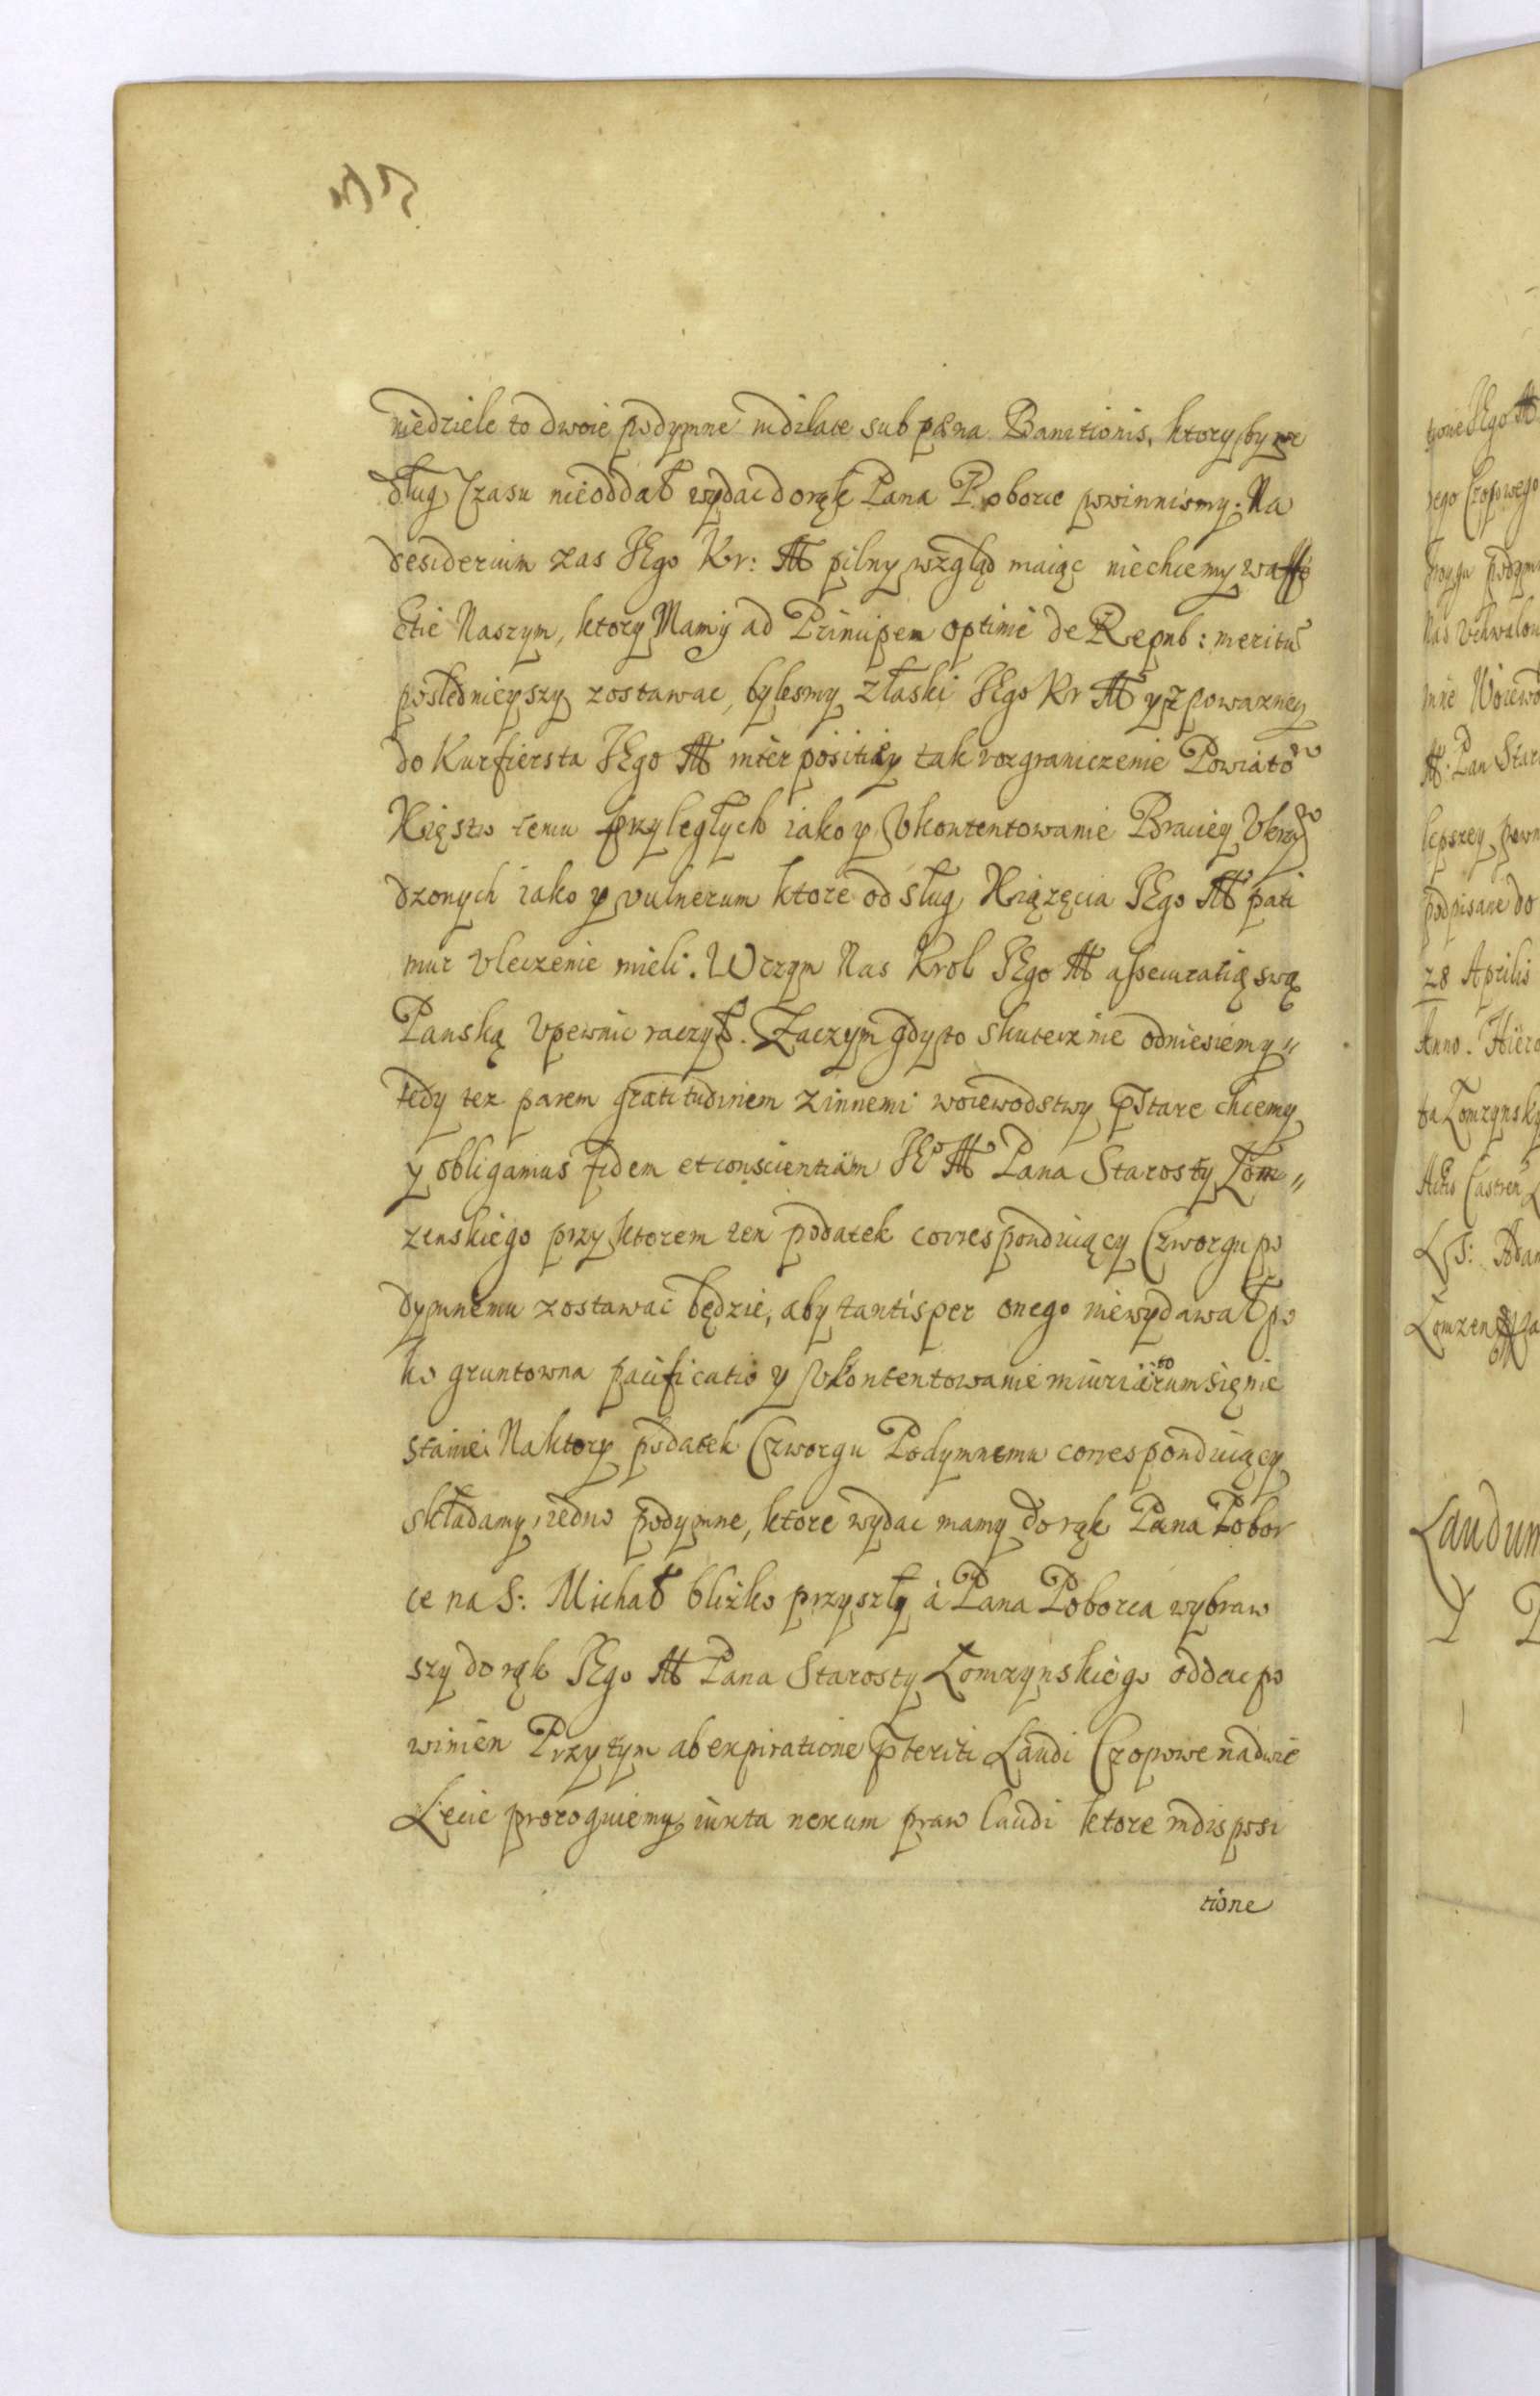 niedziele to dwoie podymne indilate sub poena Banitionis, ktory by we
dług Czasu nieoddał wydac do ręk Pana Poborce powinnismy. Na
desiderium zas JEgo Kr: M pilny wzgląd maiąc niechcemy w affe
ctie Naszym, ktory Mamy ad Principem optime de Repub: meritu
poslednieyszy zostawac, bylesmy z łaski JEgo Kr M y z powazney
do Kurfiersta JEgo M interpositiey tak rozgraniczenie Powiatow
Xięstw temu przyległych iako y Vkontentowanie Braciey Vkrzyw
dzonych iako y vulnerum ktore od sług Xiązęcia JEgo M pati
mur vleczenie mieli. W czym Nas Krol JEgo M assecuratią swą
Panską Vpewnic raczył. Zaczym gdy to skutecznie odniesiemy //
tedy tez parem gratitudinem z innemi woiewodstwy pstare chcemy
y obligamus fidem et conscientiam JEo M Pana Starosty Łom //
zenskiego przy ktorem ten podatek correspondujący Czworgu po
dymnemu zostawac będzie, aby tantisper onego niewydawał po
ko gruntowna pacificatio y Vkontentowanie iniuriarum to się nie
stanie. Na ktory podatek Czworgu Podymnemu correspondujący
składamy iedno podymne, ktore wydac mamy do ręk Pana Pobor
ce na S: Michał blizko przyszły a Pana Poborca wybraw
szy do ręk JEgo M Pana Starosty Łomzynskiego oddac po
winien Przytym ab expiratione pteriti Laudi Czopowe na dwie
Lecie prorogujemy iuxta nexum praw laudi ktore in disposi
tione